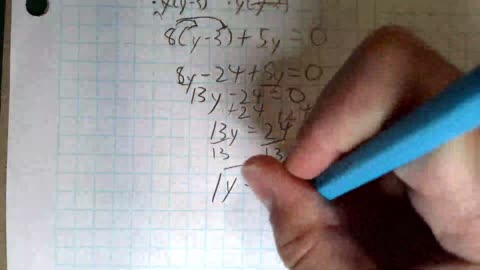 8(y-3) + 5y = 0
8y - 24 + 5y = 0
13y - 24 = 0
+24 +24
13y = 24
13 13
y